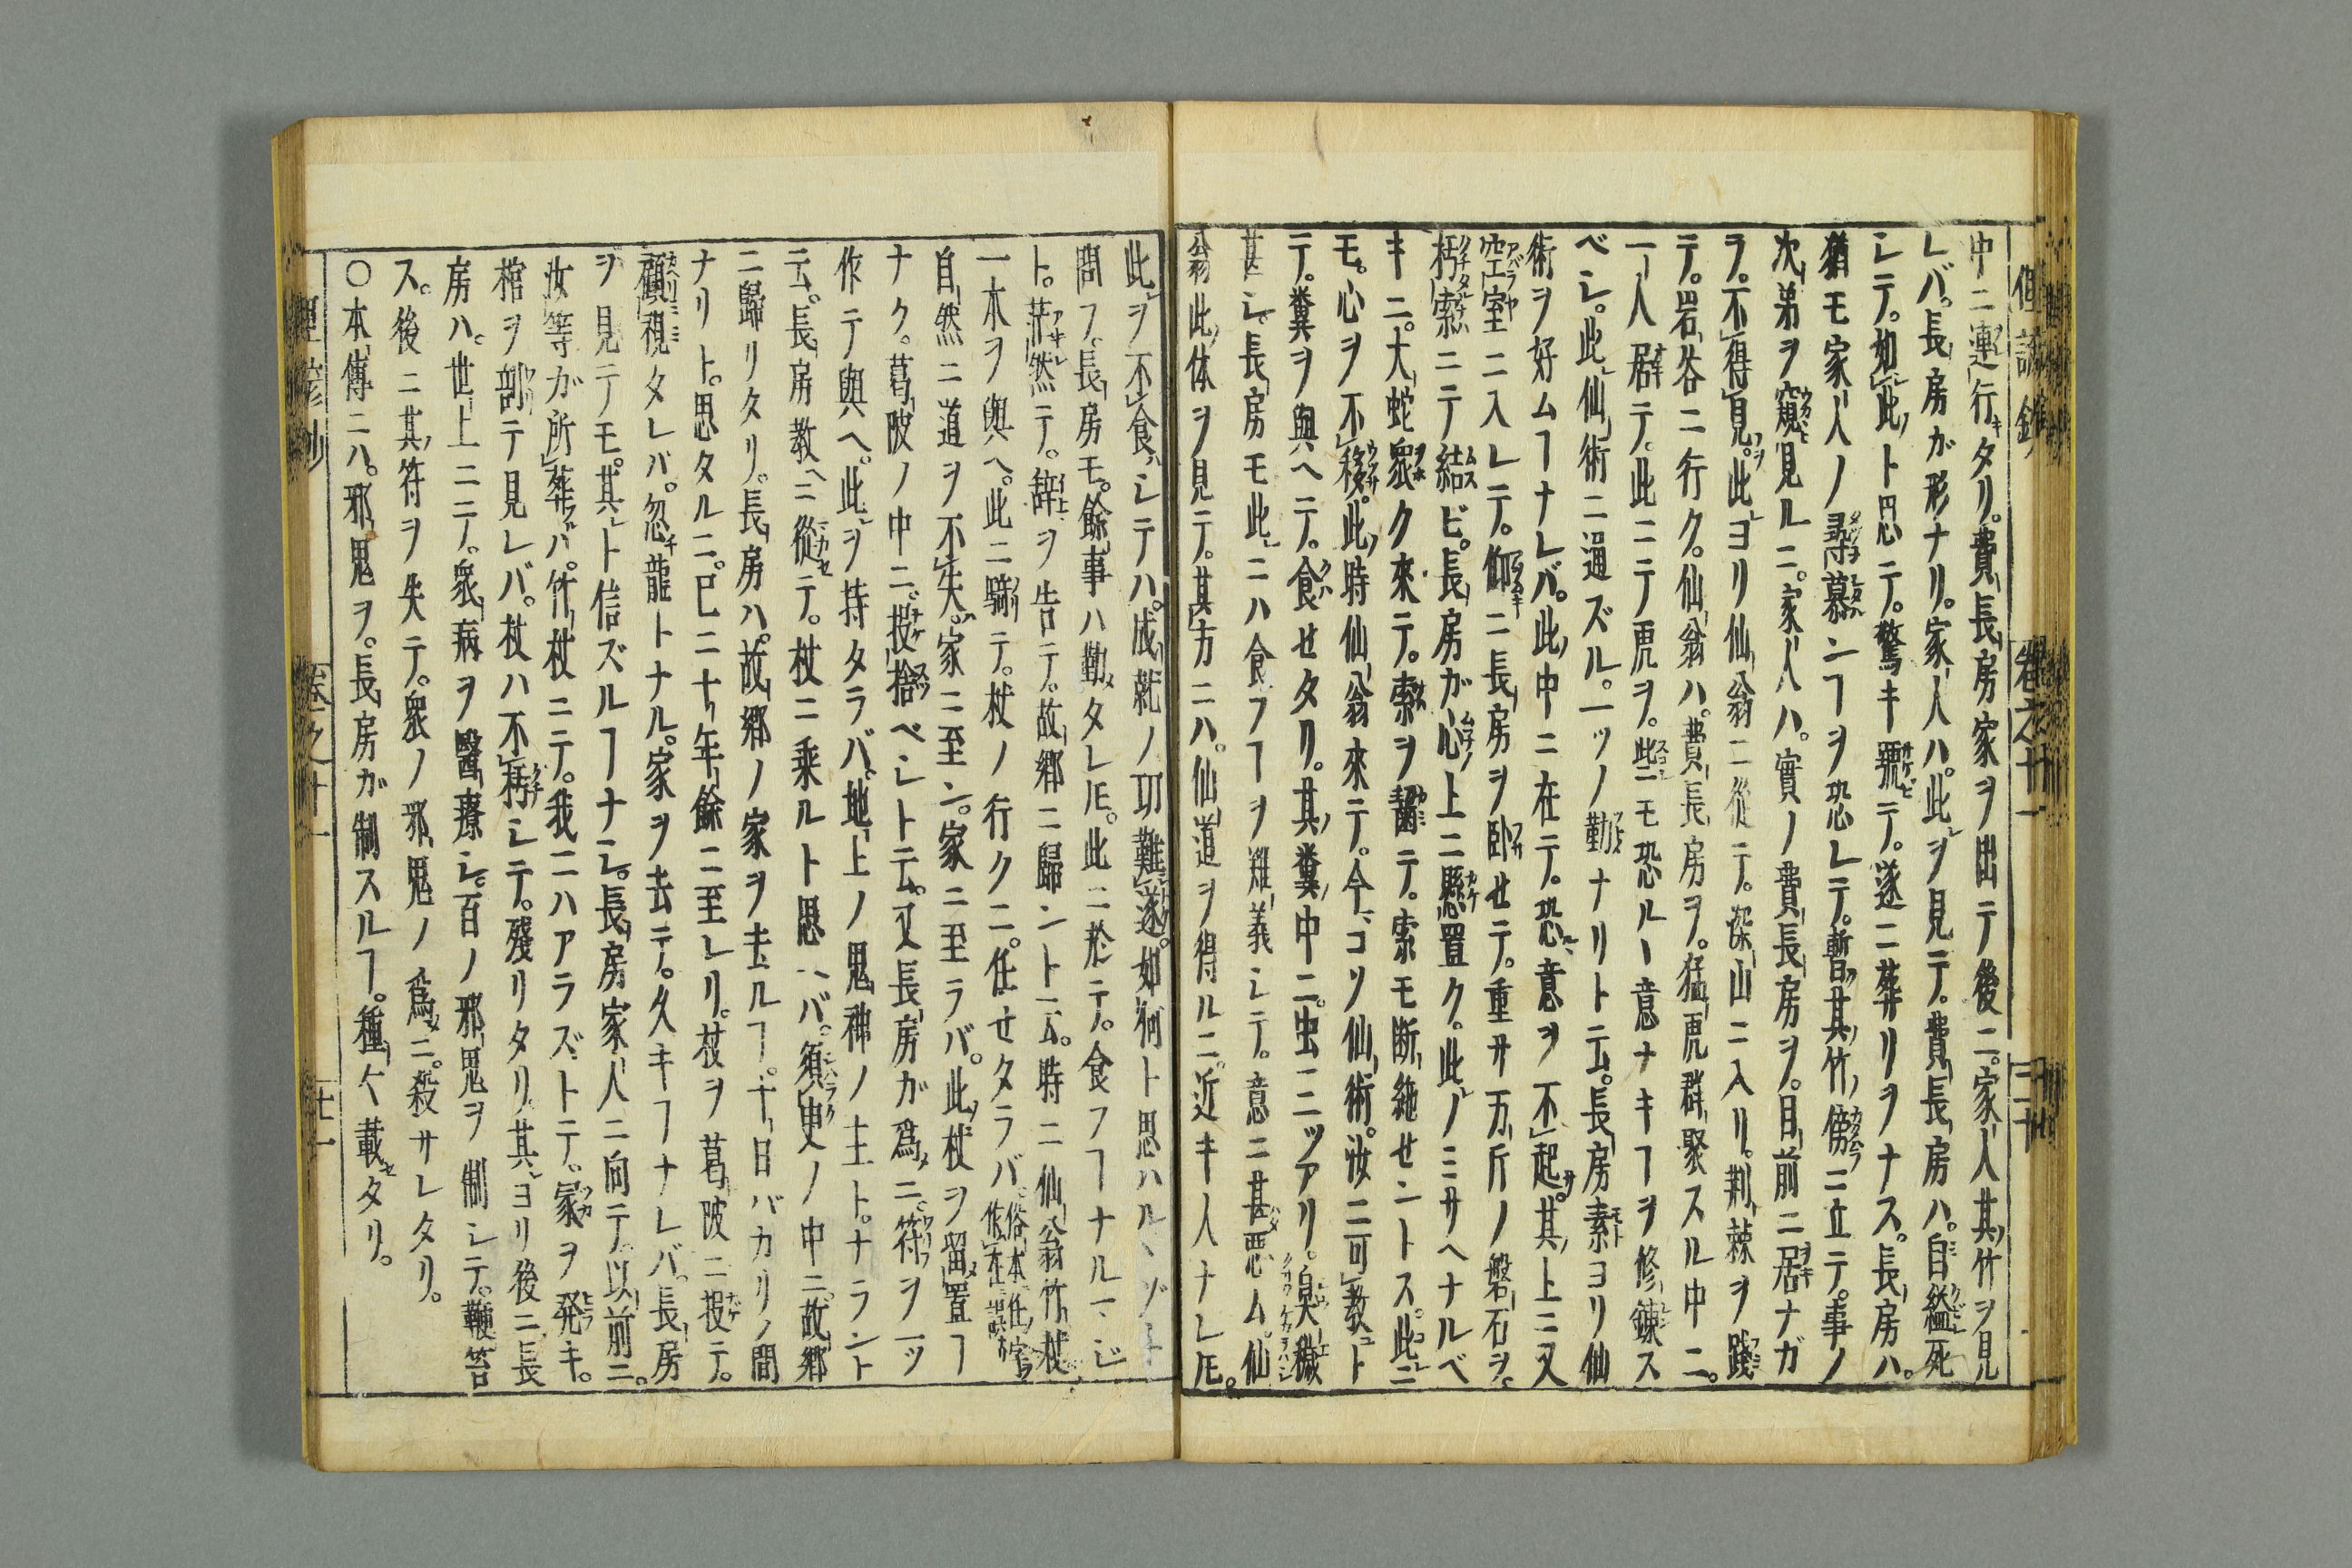 中ニ連行キタリ。費長房家ヲ出テ後ニ。家人其竹ヲ見
レバ。長房ガ形ナリ。家人ハ。此ヲ見テ。費長房ハ。自縊死
シテ。如此ト思テ。驚キ號テ。遂ニ葬リヲナス。長房ハ。
猶モ家人ノ尋慕ンヿヲ恐レテ。暫其竹ノ傍ニ立テ。事ノ
次第ヲ窺見ルニ。家人ハ。實ノ費長房ヲ。目前ニ居ナガ
ラ。不得見。此ヨリ仙翁ニ從テ。深山ニ入リ。荆棘ヲ踐
テ。岩谷ニ行ク。仙翁ハ。費長房ヲ。猛虎群聚スル中ニ。
一人居テ。此ニテ虎ヲ。些モ恐ルヽ意ナキヿヲ修錬ス
ベシ。此仙術ニ通ズル。一ツノ勤ナリト云。長房素ヨリ仙
術ヲ好ムヿナレバ。此中ニ在テ。恐意ヲ不起。其上ニ又
空室ニ入レテ。仰ニ長房ヲ卧セテ。重サ万斤ノ磐石ヲ。
朽索ニテ結ビ。長房ガ心上ニ懸置ク。此ノミサヘナルベ
キニ。大蛇衆ク來テ。索ヲ齧テ。索モ断絶セントス。此ニ
モ。心ヲ不移。此時仙翁來テ。今コソ仙術。汝ニ可教ト
テ。糞ヲ與ヘテ。食セタリ。其糞中ニ。虫三ツアリ。臭穢
甚シ。長房モ此ニハ食フヿヲ難義シテ。意ニ甚悪ム。仙
翁此体ヲ見テ。其方ニハ。仙道ヲ得ルニ。近キ人ナレ𪜈。
此ヲ不食シテハ。成就ノ功難遂。如何ト思ハルヽゾト
問フ。長房モ。餘事ハ勤タレ𪜈。此ニ於テ。食フヿナルマジ
ト。茫然テ。辞ヲ告テ。故郷ニ歸ント云。時ニ仙翁竹杖
一本ヲ與ヘ。此ニ騎テ。杖ノ行クニ。任セタラバ。俗本任字作在誤
自然ニ道ヲ不失。家ニ至ン。家ニ至ラバ。此杖ヲ留置ヿ
ナク。葛陂ノ中ニ。投捨ベシト云。又長房ガ爲ニ。符ヲ一ツ
作テ與ヘ。此ヲ持タラバ。地上ノ鬼神ノ主トナラント
云。長房教ヘニ從テ。杖ニ乗ルト思ヘバ。須臾ノ中ニ。故郷
ニ歸リタリ。長房ハ。故郷ノ家ヲ去ルヿ。十日バカリノ間
ナリト。思タルニ。已ニ十年餘ニ至レリ。杖ヲ葛陂ニ投テ。
顧視タレバ。忽龍トナル。家ヲ去テ。久キヿナレバ。長房
ヲ見テモ。其ト信ズルヿナシ。長房家人ニ向テ。以前ニ。
汝等ガ所葬ハ。竹杖ニテ。我ニハアラズトテ。冢ヲ発キ。
棺ヲ剖テ見レバ。杖ハ不朽シテ。殘リタリ。其ヨリ後ニ長
房ハ。世上ニテ。衆病ヲ醫療シ。百ノ邪鬼ヲ制シテ。鞭笞
ス。後ニ其符ヲ失テ。衆ノ邪鬼ノ爲ニ。殺サレタリ。
〇本傳ニハ。邪鬼ヲ。長房ガ制スルヿ。種々載タリ。
卷之十一